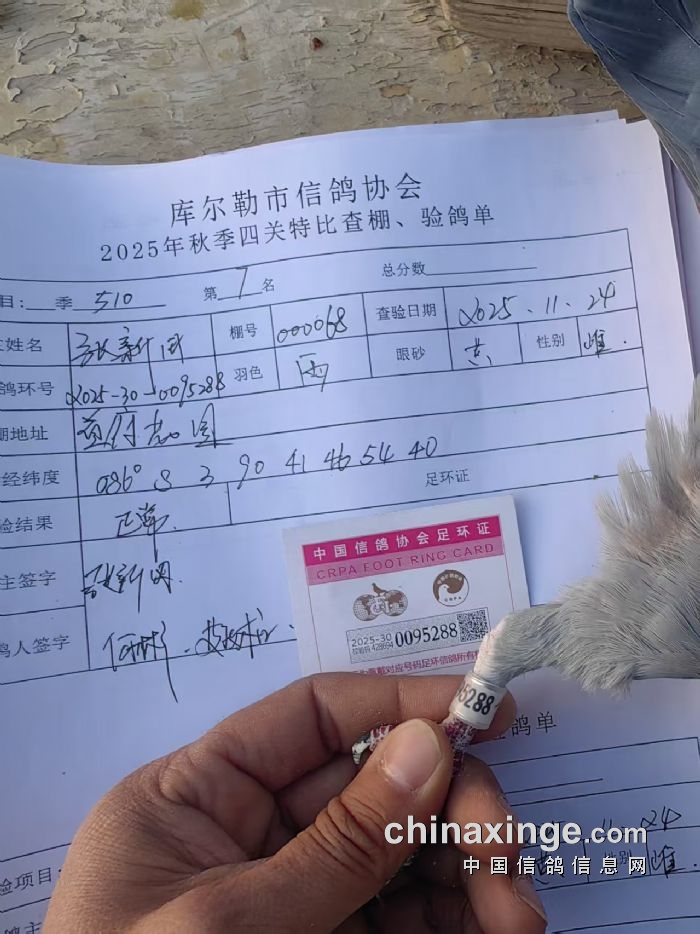 库尔勒市信鸽协会
2025年秋季四关特比查棚、验鸽单
目: 季 510 第 1 名 总分数
姓名 张新国 棚号 000068 查验日期 2025.11.24
鸽环号 2025-30-0095288 羽色 雨 眼砂 黄 性别 雌.
棚地址 首府花园
经纬度 086° 8 3 90 41 46 54 40
验结果 正常. 足环证
主签字 张新国.
鸽人签字
中国信鸽协会足环证
CRPA FOOT RING CARD
2025-30 0095288
428694
为佩戴对应号码足环信鸽所有
5288
验鸽单
11 24
性别 雌.
验项目:
chinaxinge.com
中国信鸽信息网